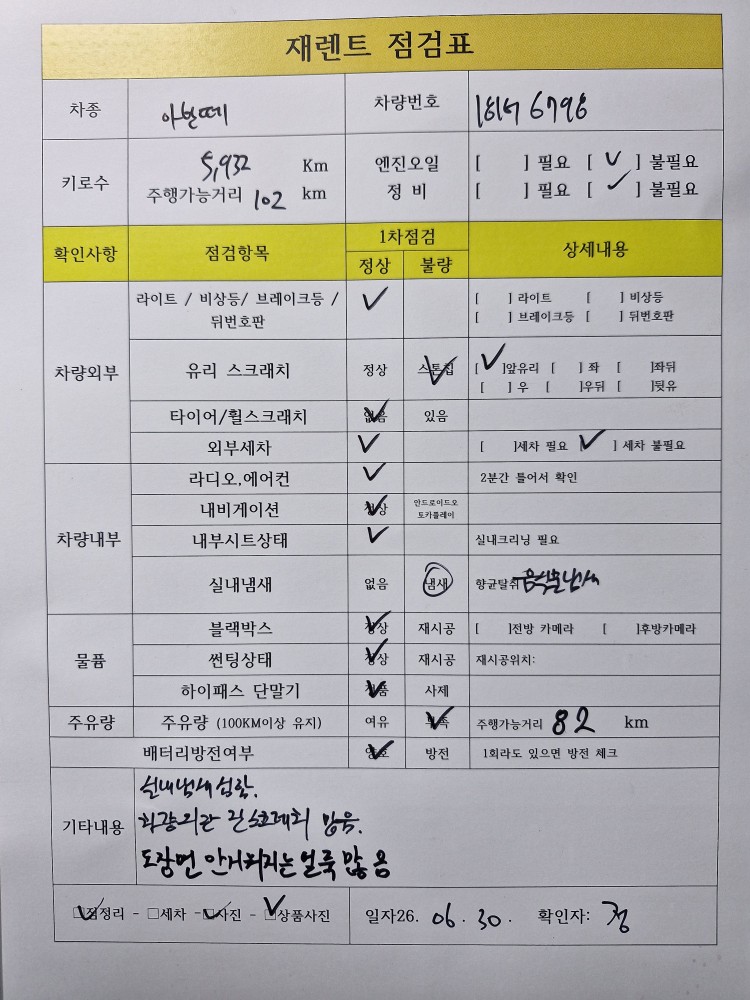 재렌트 점검표
차종 아반떼 차량번호 6798
키로수 5,932 Km 엔진오일 [ ] 필요 [ ✓ ] 불필요
주행가능거리 102 km 정 비 [ ] 필요 [ ✓ ] 불필요
확인사항 점검항목 1차점검 상세내용
정상 불량
차량외부 라이트 / 비상등/ 브레이크등 / 뒤번호판 ✓ [ ] 라이트 [ ] 비상등
[ ] 브레이크등 [ ] 뒤번호판
유리 스크래치 정상 스톤칩 ✓ [ ✓ ]앞유리 [ ] 좌 [ ]좌뒤
[ ] 우 [ ]우뒤 [ ]뒷유
타이어/휠스크래치 없음 ✓ 있음
외부세차 ✓ [ ]세차 필요 [ ✓ ] 세차 불필요
차량내부 라디오,에어컨 ✓ 2분간 틀어서 확인
내비게이션 정상 ✓ 안드로이드오토카플레이
내부시트상태 ✓ 실내크리닝 필요
실내냄새 없음 냄새 향균탈취 음식물냄새
물품 블랙박스 정상 ✓ 재시공 [ ]전방 카메라 [ ]후방카메라
썬팅상태 정상 ✓ 재시공 재시공위치:
하이패스 단말기 정품 ✓ 사제
주유량 주유량 (100KM이상 유지) 여유 부족 ✓ 주행가능거리 82 km
배터리방전여부 양호 ✓ 방전 1회라도 있으면 방전 체크
기타내용 실내냄새심함.
외관 잔스크래치 많음.
도장면 안지워지는 얼룩 많음
✓정리 - □세차 - ✓사진 - ✓상품사진 일자26. 06. 30. 확인자: